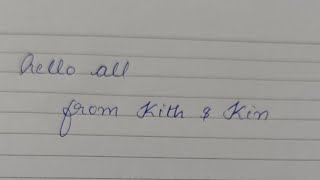 hello all
from Kith & Kin